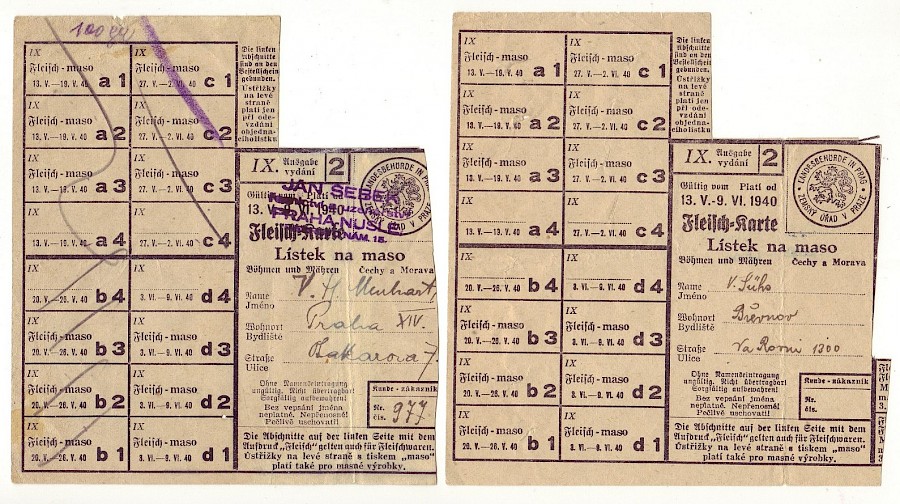 IX
Fleisch-maso
13. V.—19. V. 40 a 1
IX
Fleisch-maso
27. V.—2. VI. 40 c 1
Die linken
Abschnitte
sind an den
Bestellschein
gebunden.
Ústřižky
na levé
straně
platí jen
při ode-
vzdání
objedna-
cího lístku
IX
Fleisch-maso
13. V.—19. V. 40 a 2
IX
Fleisch-maso
27. V.—2. VI. 40 c 2
IX
Fleisch-maso
13. V.—19. V. 40 a 3
IX
Fleisch-maso
27. V.—2. VI. 40 c 3
IX
13. V.—19. V. 40 a 4
IX
27. V.—2. VI. 40 c 4
IX
20. V.—26. V. 40 b 4
IX
3. VI.—9. VI. 40 d 4
IX
Fleisch-maso
20. V.—26. V. 40 b 3
IX
Fleisch-maso
3. VI.—9. VI. 40 d 3
IX
Fleisch-maso
20. V.—26. V. 40 b 2
IX
Fleisch-maso
3. VI.—9. VI. 40 d 2
IX
Fleisch-maso
20. V.—26. V. 40 b 1
IX
Fleisch-maso
3. VI.—9. VI. 40 d 1
IX. Ausgabe
vydání 2
LANDESBEHÖRDE IN PRAG
ZEMSKÝ ÚŘAD V PRAZE
Gültig vom Platí od
13. V.-9. VI. 1940
JAN SEBER
PRAHA-NUSLE
NÁM. 15.
Fleisch-Karte
Lístek na maso
Böhmen und Mähren Čechy a Morava
Name
Jméno
Wohnort Praha XIV.
Bydliště
Straße
Ulice
Ohne Namenseintragung
ungültig. Nicht übertragbar!
Sorgfältig aufbewahren!
Bez vepsání jména
neplatné. Nepřenosné!
Pečlivě uschovati!
Kunde - zákazník
Nr.
čís. 977
Die Abschnitte auf der linken Seite mit dem
Aufdruck „Fleisch" gelten auch für Fleischwaren.
Ústřižky na levé straně s tiskem „maso"
platí také pro masné výrobky.
IX
Fleisch-maso
13. V.—19. V. 40 a 1
IX
Fleisch-maso
27. V.—2. VI. 40 c 1
Die linken
Abschnitte
sind an den
Bestellschein
gebunden.
Ústřižky
na levé
straně
platí jen
při ode-
vzdání
objedna-
cího lístku
IX
Fleisch-maso
13. V.—19. V. 40 a 2
IX
Fleisch-maso
27. V.—2. VI. 40 c 2
IX
Fleisch-maso
13. V.—19. V. 40 a 3
IX
Fleisch-maso
27. V.—2. VI. 40 c 3
IX
13. V.—19. V. 40 a 4
IX
27. V.—2. VI. 40 c 4
IX
20. V.—26. V. 40 b 4
IX
3. VI.—9. VI. 40 d 4
IX
Fleisch-maso
20. V.—26. V. 40 b 3
IX
Fleisch-maso
3. VI.—9. VI. 40 d 3
IX
Fleisch-maso
20. V.—26. V. 40 b 2
IX
Fleisch-maso
3. VI.—9. VI. 40 d 2
IX
Fleisch-maso
20. V.—26. V. 40 b 1
IX
Fleisch-maso
3. VI.—9. VI. 40 d 1
IX. Ausgabe
vydání 2
LANDESBEHÖRDE IN PRAG
ZEMSKÝ ÚŘAD V PRAZE
Gültig vom Platí od
13. V.-9. VI. 1940
Fleisch-Karte
Lístek na maso
Böhmen und Mähren Čechy a Morava
Name V.
Jméno
Wohnort Břevnov
Bydliště
Straße Na 1300
Ulice
Ohne Namenseintragung
ungültig. Nicht übertragbar!
Sorgfältig aufbewahren!
Bez vepsání jména
neplatné. Nepřenosné!
Pečlivě uschovati!
Kunde - zákazník
Nr.
čís.
Die Abschnitte auf der linken Seite mit dem
Aufdruck „Fleisch" gelten auch für Fleischwaren.
Ústřižky na levé straně s tiskem „maso"
platí také pro masné výrobky.